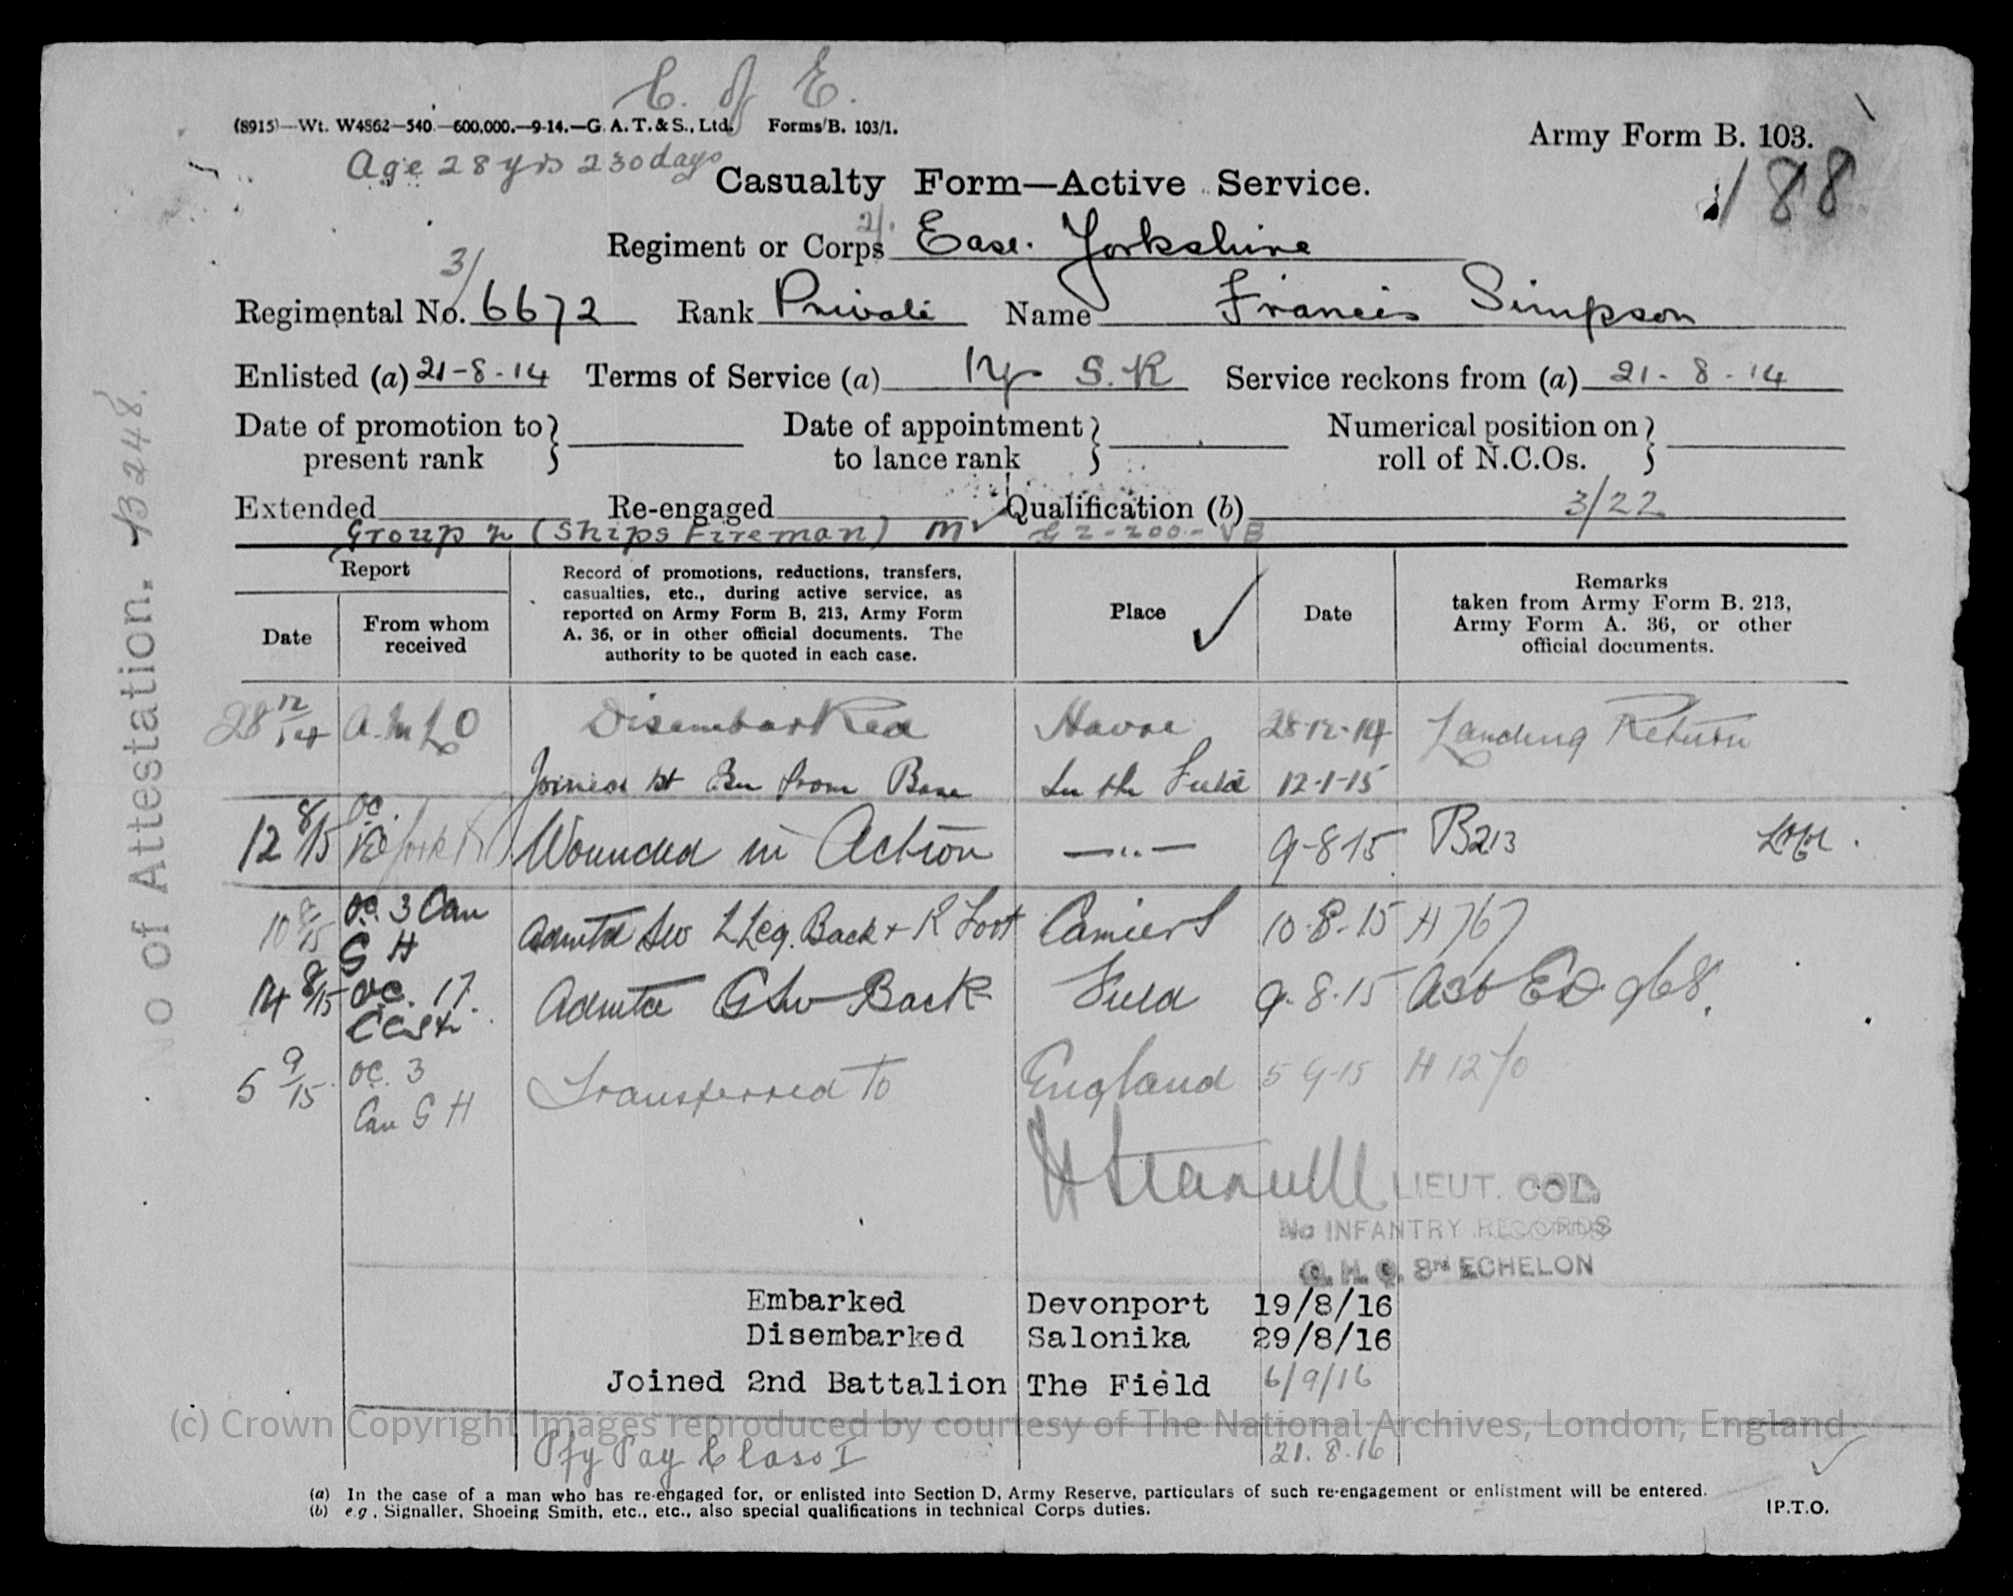 C. of E.
(8915)—Wt. W4862—540.—600,000.—9-14.—G. A. T. & S., Ltd. Forms/B. 103/1.
Army Form B. 103.
Age 28 yrs 230 days
188
Casualty Form—Active Service.
Regiment or Corps 2/. East. Yorkshire
3/
Regimental No. 6672 Rank Private Name Francis Simpson
Enlisted (a) 21-8-14 Terms of Service (a) 1 yr S.R Service reckons from (a) 21-8-14
Date of promotion to present rank } Date of appointment to lance rank } Numerical position on roll of N.C.Os. }
Extended Re-engaged Qualification (b) 3/22
Group 2 (Ships Fireman) M
Report
Date
From whom received
Record of promotions, reductions, transfers, casualties, etc., during active service, as reported on Army Form B, 213, Army Form A. 36, or in other official documents. The authority to be quoted in each case.
Place
Date
Remarks taken from Army Form B. 213, Army Form A. 36, or other official documents.
28 12/14 A.M.L.O Disembarked Havre 28-12-14 Landing Return
Joined 1st Bn from Base In the Field 12-1-15
12 8/15 OC Wounded in Action —"— 9-8-15 B213
10 8/15 OC. 3 Can G H Admitd SW L Leg. Back + R Foot Camiers 10-8-15 H 767
14 8/15 OC. 17 CCS Admitd GSW Back Field 9-8-15 A36 968.
5 9/15 OC. 3 Can G H Transferred to England 5-9-15 H 1270
LIEUT. COL.
INFANTRY RECORDS
G. H. Q. 3rd ECHELON
Embarked Devonport 19/8/16
Disembarked Salonika 29/8/16
Joined 2nd Battalion The Field 6/9/16
(c) Crown Copyright Images reproduced by courtesy of The National Archives, London, England
Pfy Pay Class I 21.8.16
(a) In the case of a man who has re-engaged for, or enlisted into Section D, Army Reserve, particulars of such re-engagement or enlistment will be entered.
(b) e.g., Signaller, Shoeing Smith, etc., etc., also special qualifications in technical Corps duties.
[P.T.O.
No of Attestation.